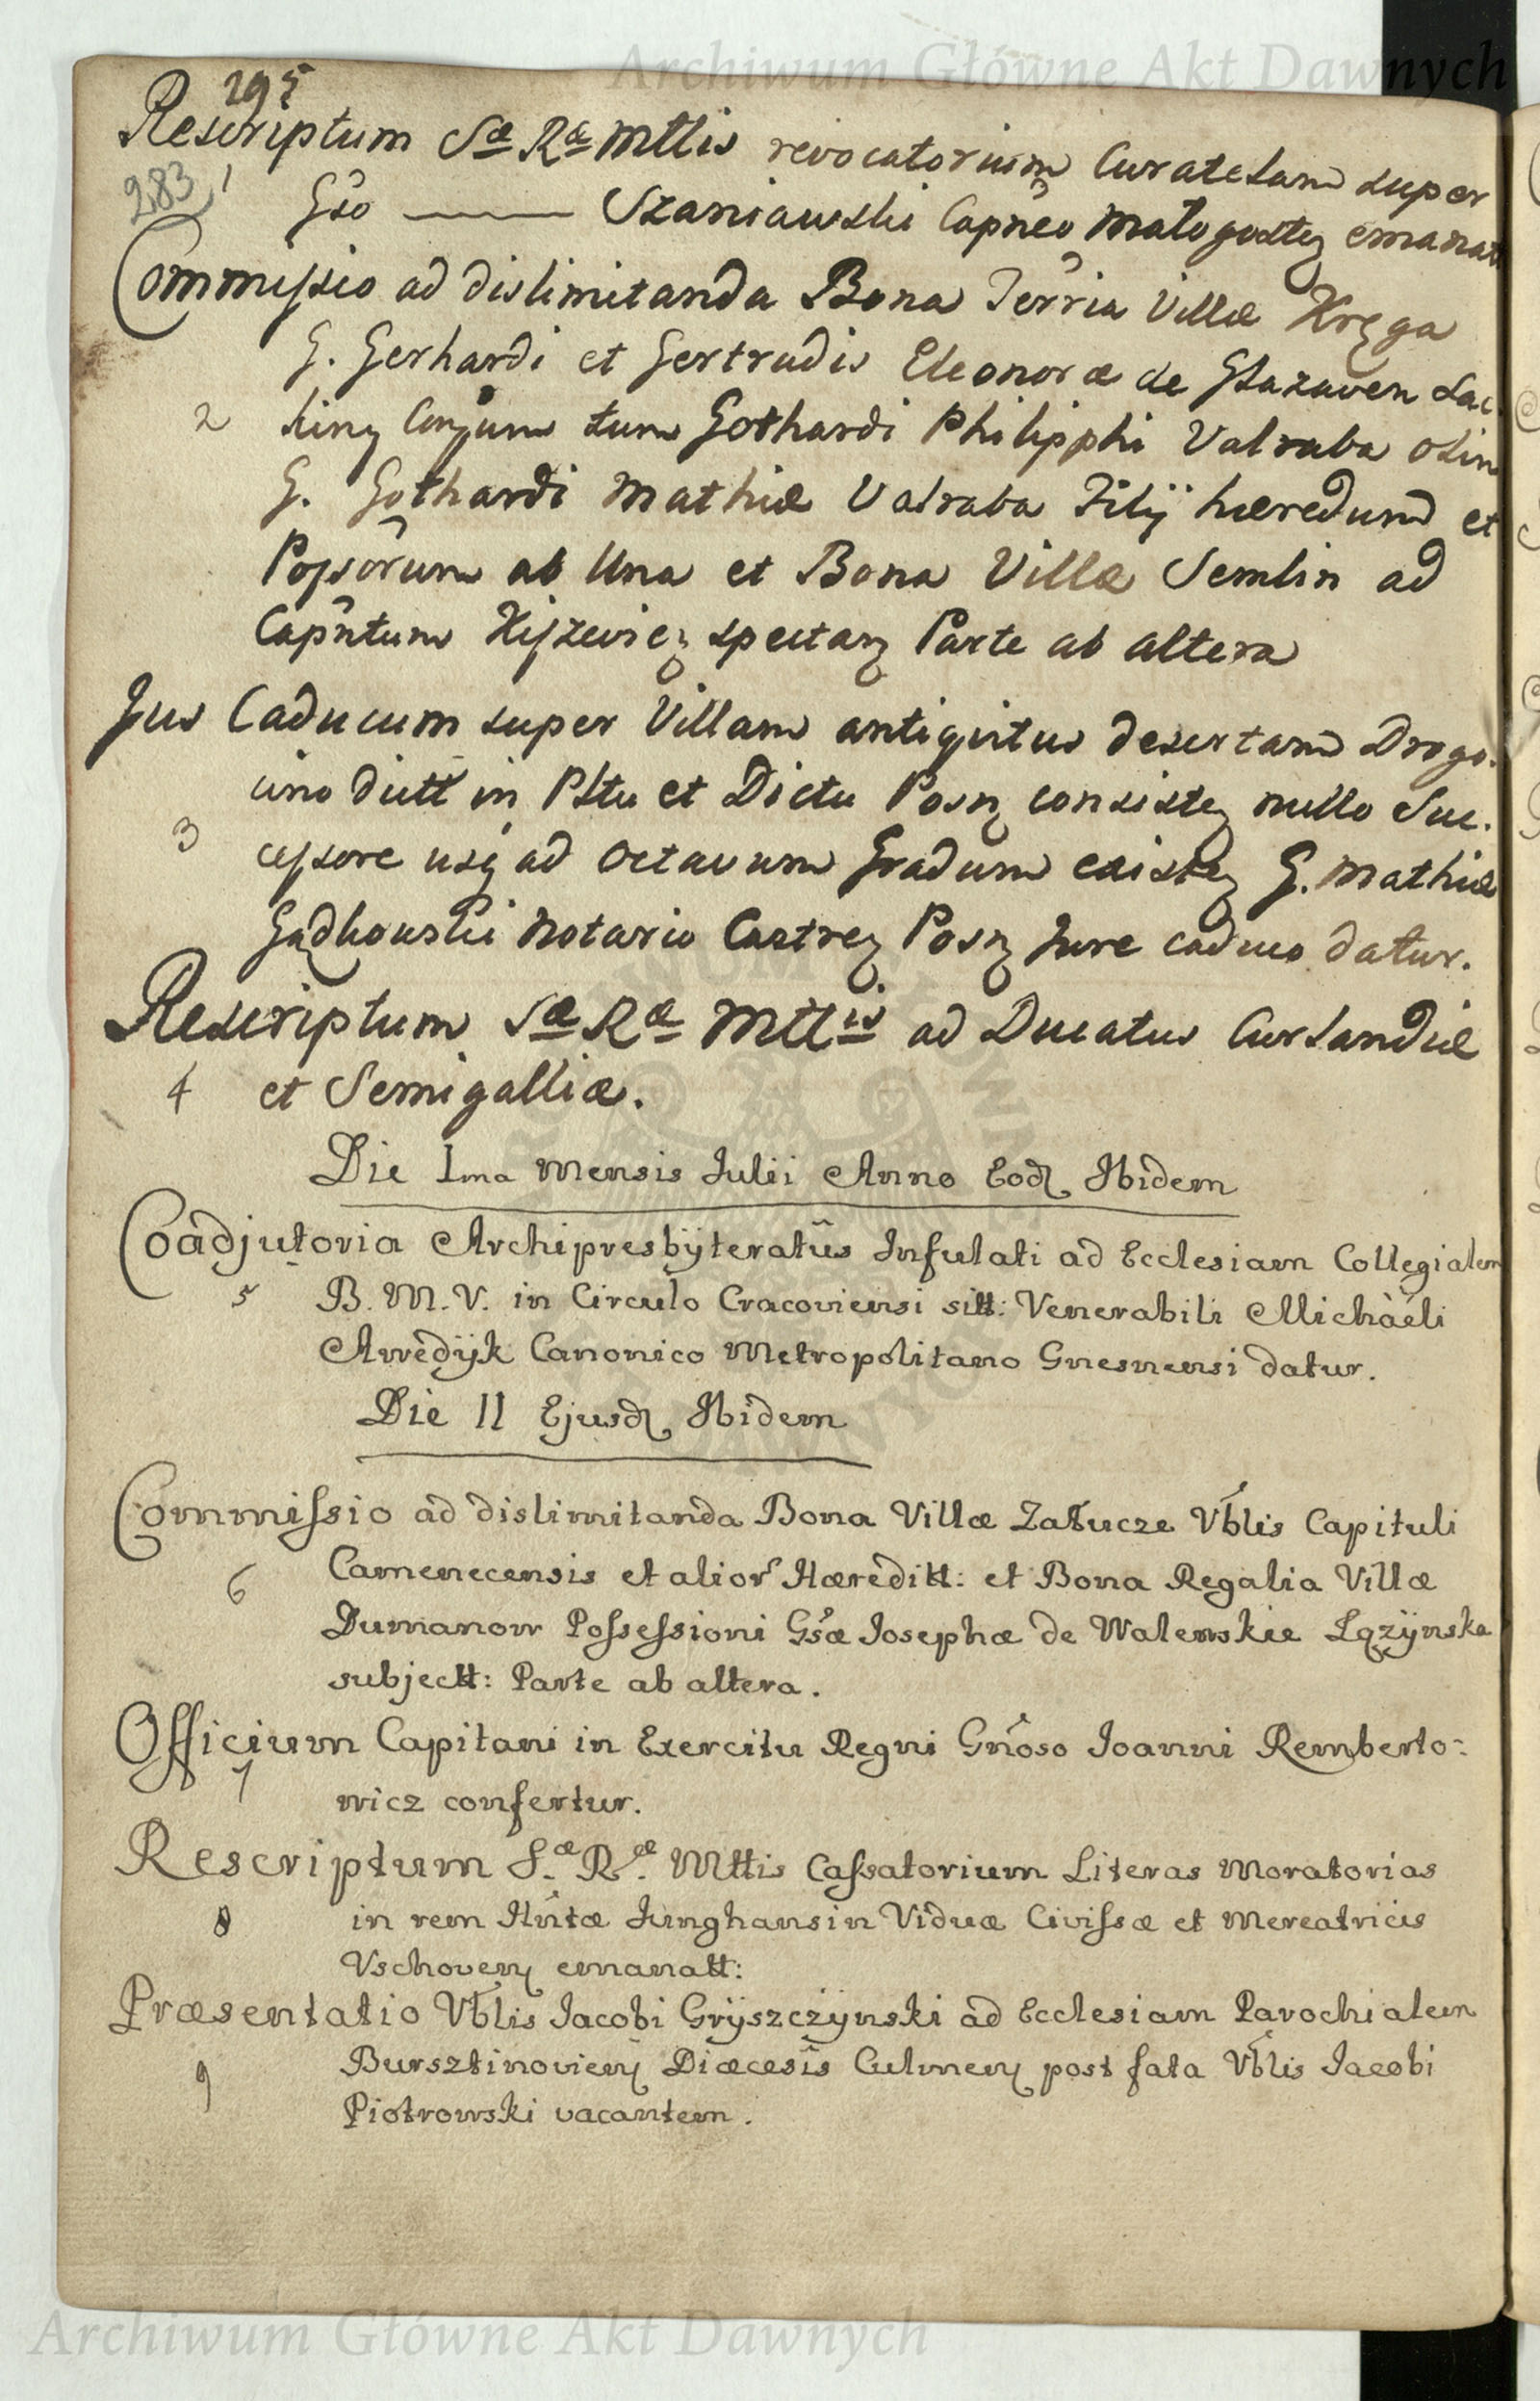 Archiwum Główne Akt Dawnych
295
Rescriptum Sæ Ræ Mttis revocatorium Curatelam super
283
1 Gso — Szaniawski Capñeo Małogostę emanat
Commissio ad dislimitanda Bona Terria Villæ Kręga
G. Gerhardi et Gertrudis Eleonoræ de Stazawen Lac
2 king Conjum tum Gothardi Philipphi Valraba olim
G. Gothardi Mathiæ Valraba Filij hæredum et
Possorum ab Una et Bona Villæ Semlin ad
Capñtum spectan Parte ab altera
Jus Caducum super Villam antiquitus desertam Drogo.
cino dictt in Pltu et Dictu Posn consisten nullo Suc.
3 cessore usq ad octavum Gradum existen G. Mathiæ
Gądkowski Notario Castren Posn Jure caduco datur.
Rescriptum Sæ Ræ Mttis ad Ducatus Curlandiæ
4 et Semigalliæ.
Die Ima Mensis Julii Anno Eod Ibidem
Coadjutoria Archipresbÿteratûs Infulati ad Ecclesiam Collegialem
5 B. M. V. in Circulo Cracoviensi sitt: Venerabili Michaëli
Awedÿk Canonico Metropolitano Gnesnensi datur.
Die 11 Ejusd Ibidem
Commissio ad dislimitanda Bona Villæ Załucze Vblis Capituli
6 Camenecensis et alior Hæreditt: et Bona Regalia Villæ
Dumanow Possessioni Gsæ Josephæ de Walewskie Łączÿnska
subjectt: Parte ab altera.
Officium Capitani in Exercitu Regni Gñoso Joanni Remberto-
7 wicz confertur.
Rescriptum S.æ R.æ Mttis Cassatorium Literas Moratorias
8 in rem Hñtæ Junghansin Viduæ Civissæ et Mercatricis
Vschoven emanatt:
Præsentatio Vblis Jacobi Grÿszczÿnski ad Ecclesiam Parochialem
9 Bursztinovien Diæcesîs Culmen post fata Vblis Jacobi
Piotrowski vacantem.
Archiwum Główne Akt Dawnych